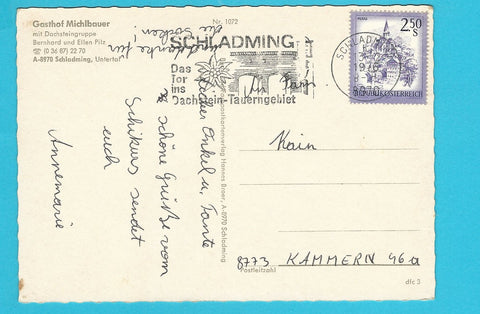 Gasthof Michlbauer
mit Dachsteingruppe
Bernhard und Ellen Pilz
(0 36 87) 22 70
A-8970 Schladming, Untertal
Nr. 1072
SCHLADMING
Das
Tor
ins
Dachstein-Tauerngebiet
SCHLADMING
1976
8970
2.50
S
REPUBLIK ÖSTERREICH
An Fam.
Kain
8773 KAMMERN 46a
Postleitzahl
dfc 3
Hannes Bauer, A-8970 Schladming
danke für
die Socken!
Lieber Onkel u. Tante
schöne Grüße vom
Schikurs sendet
euch
Annemarie